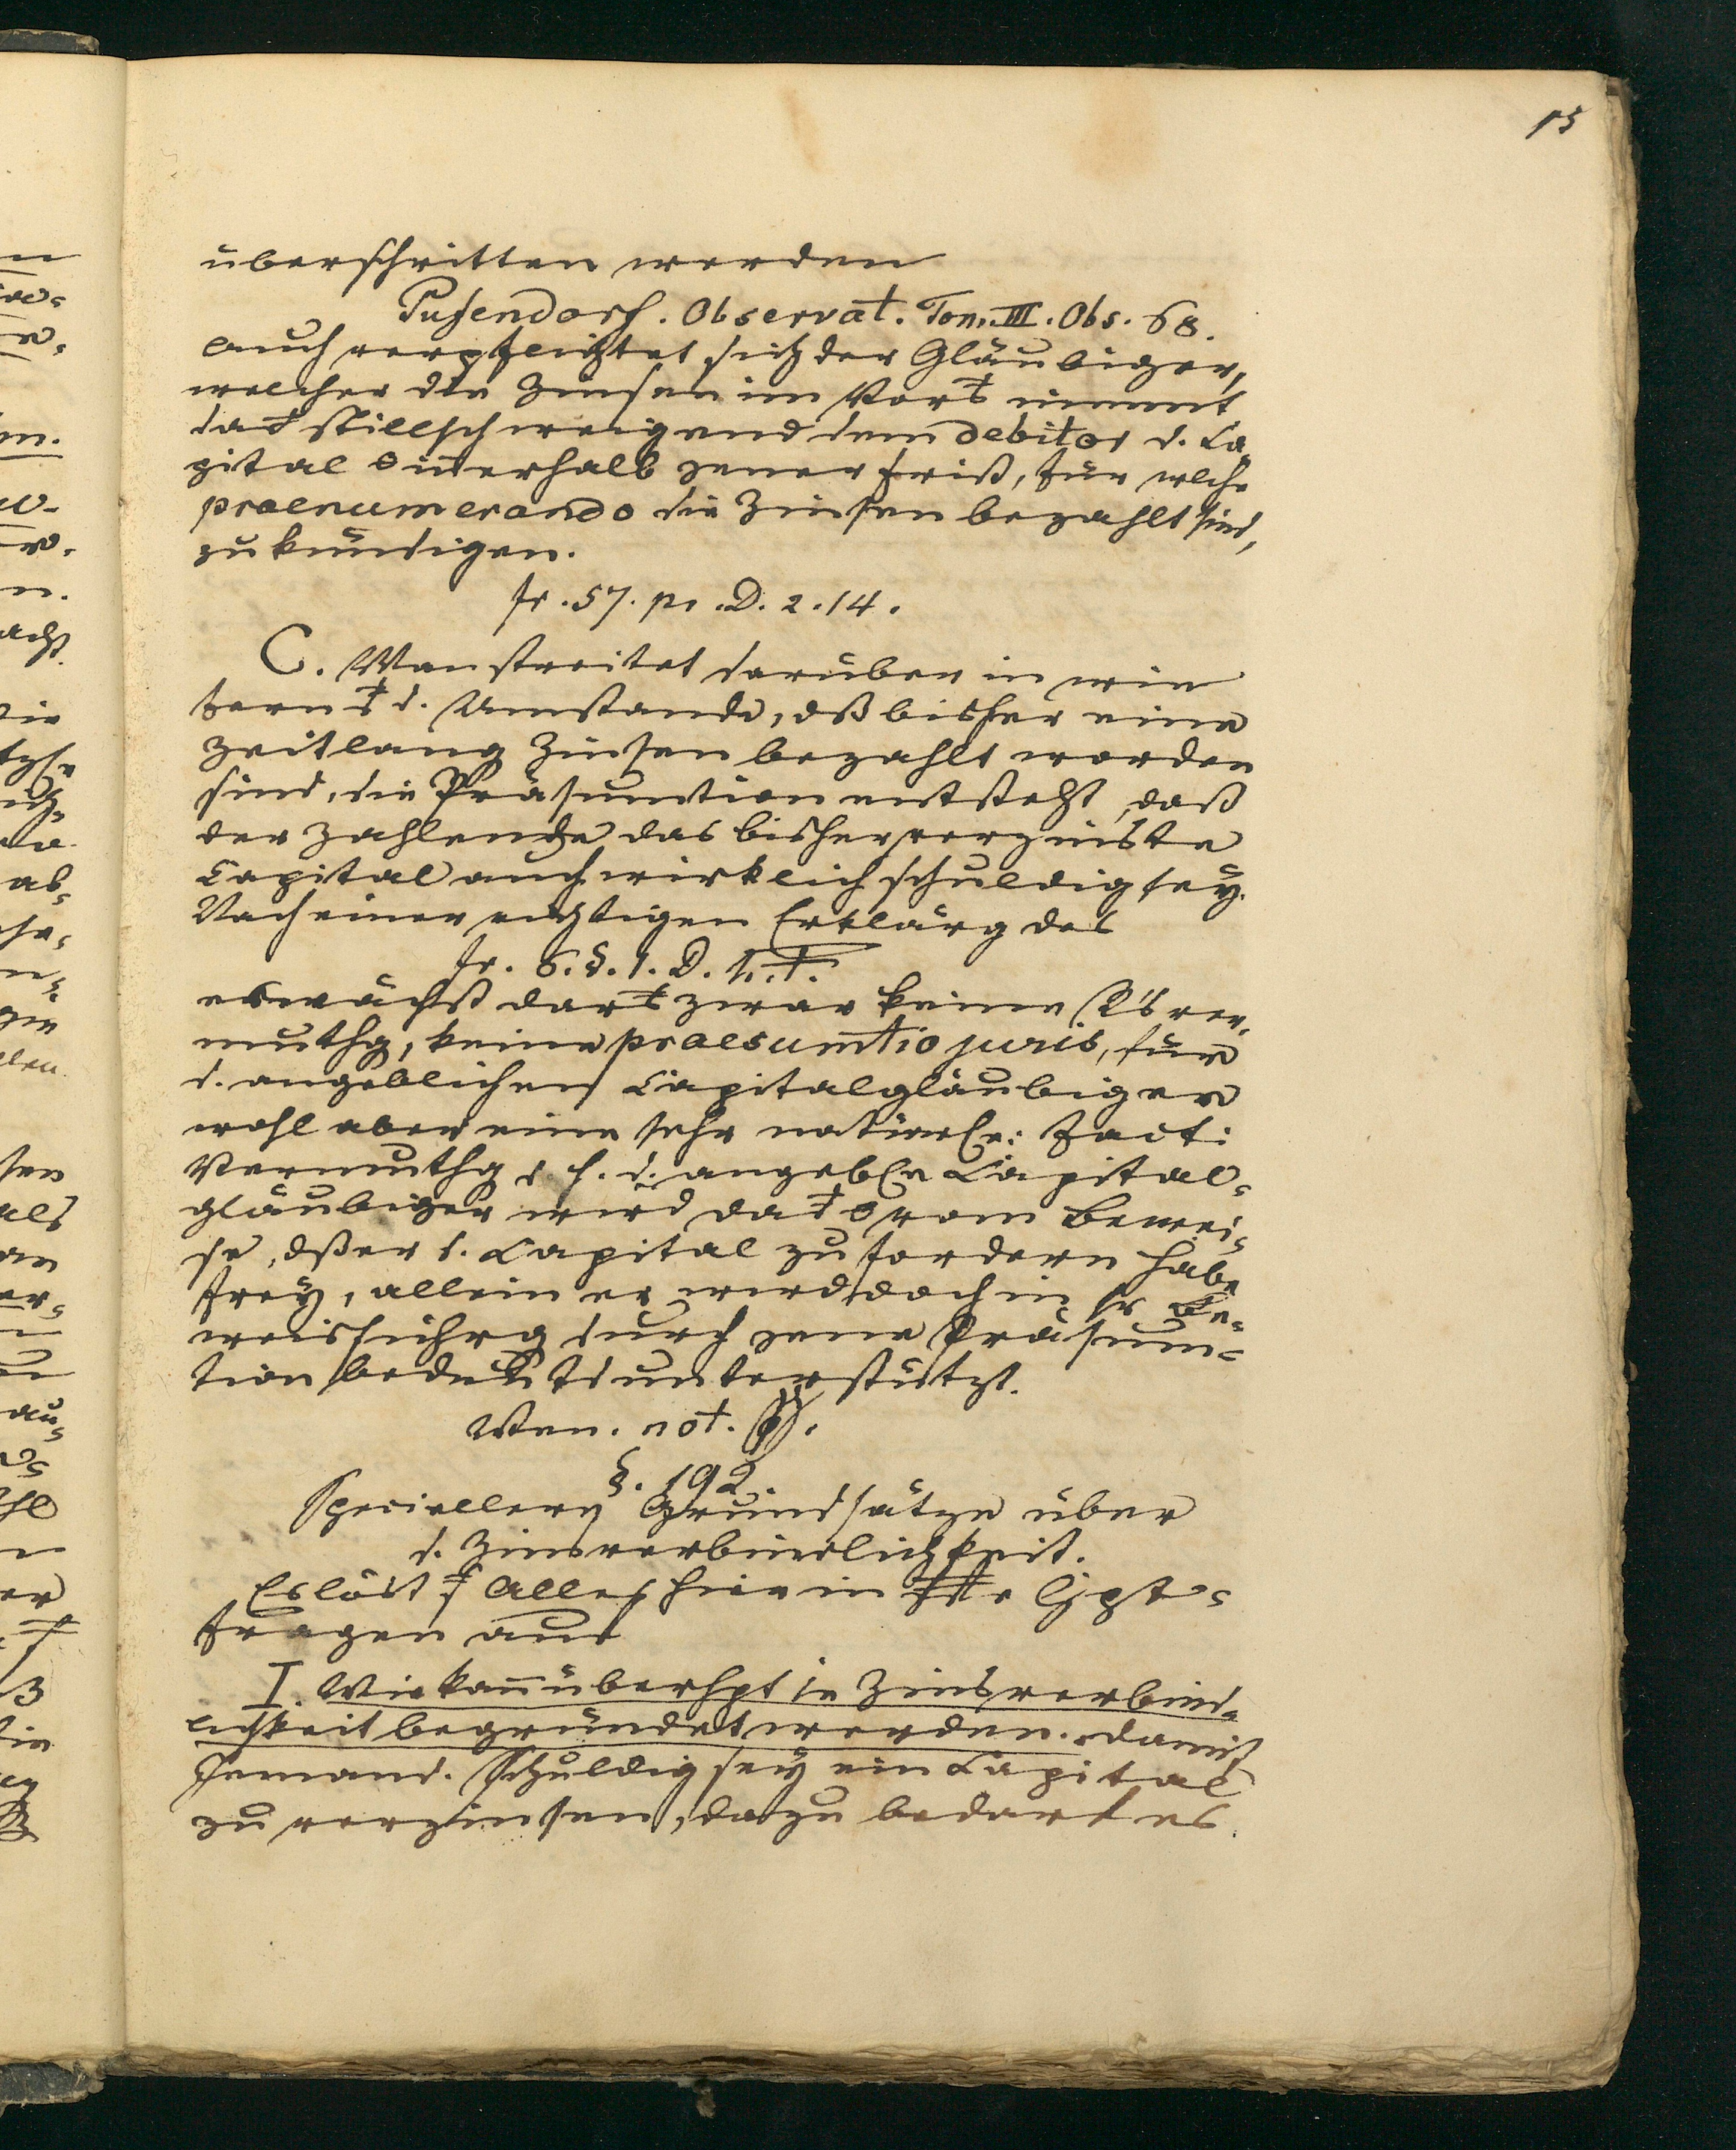 15
überschritten werden
Pufendorf. Observat. Tom. III. Obs. 68.
auch verpflichtet sich der Gläubiger,
welcher die Zinsen im Vor nimmt,
stillschweigend dem debitor d. Ca-
pital innerhalb jener Frist, für welche
praenumerando die Zinsen bezahlt sind,
zu kündigen.
fr. 57. pr. D. 2. 14.
C. Man streitet darüber in wie
fern d. Umstande, dß bisher eine
Zeitlang Zinsen bezahlt worden
sind, die Präsumtion entsteht, daß
der Zahlende das bisher verzinste
Capital auch wirklich schuldig sey.
Nach einer richtigen Erklärg des
fr. 6. §. 1. D. h. t.
erwächst zwar keine ver-
muthg, keine praesumtio juris, für
d. angeblichen Capitalgläubiger
wohl aber eine sehr facti
Vermuthg d. h. d. angebl Capital-
gläubiger wird vom Bewei-
se, dß er d. Capital zu fordern habe
frey, allein er wird doch in sr Be-
weisführg durch jene Präsum-
tion bedeutend unterstützt.
Wen. not.
§. 192.
Speciellere Grundsätze über
d. Zinsverbindlichkeit.
Es löst Alles hier in Hpt-
fragen auf
I. Wie kann überhpt ie Zinsverbind-
lichkeit begründet werden. damit
Jemand. schuldig sey ein Capital
zu verzinsen, dazu bedarf es